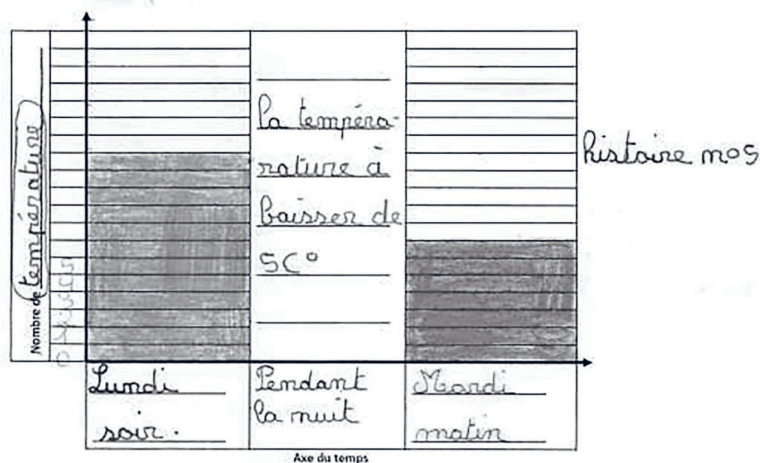 Nombre de température
La tempéra-
rature à
baisser de
5C°
histoire n°5
Lundi
soir.
Pendant
la nuit
Mardi
matin
Axe du temps